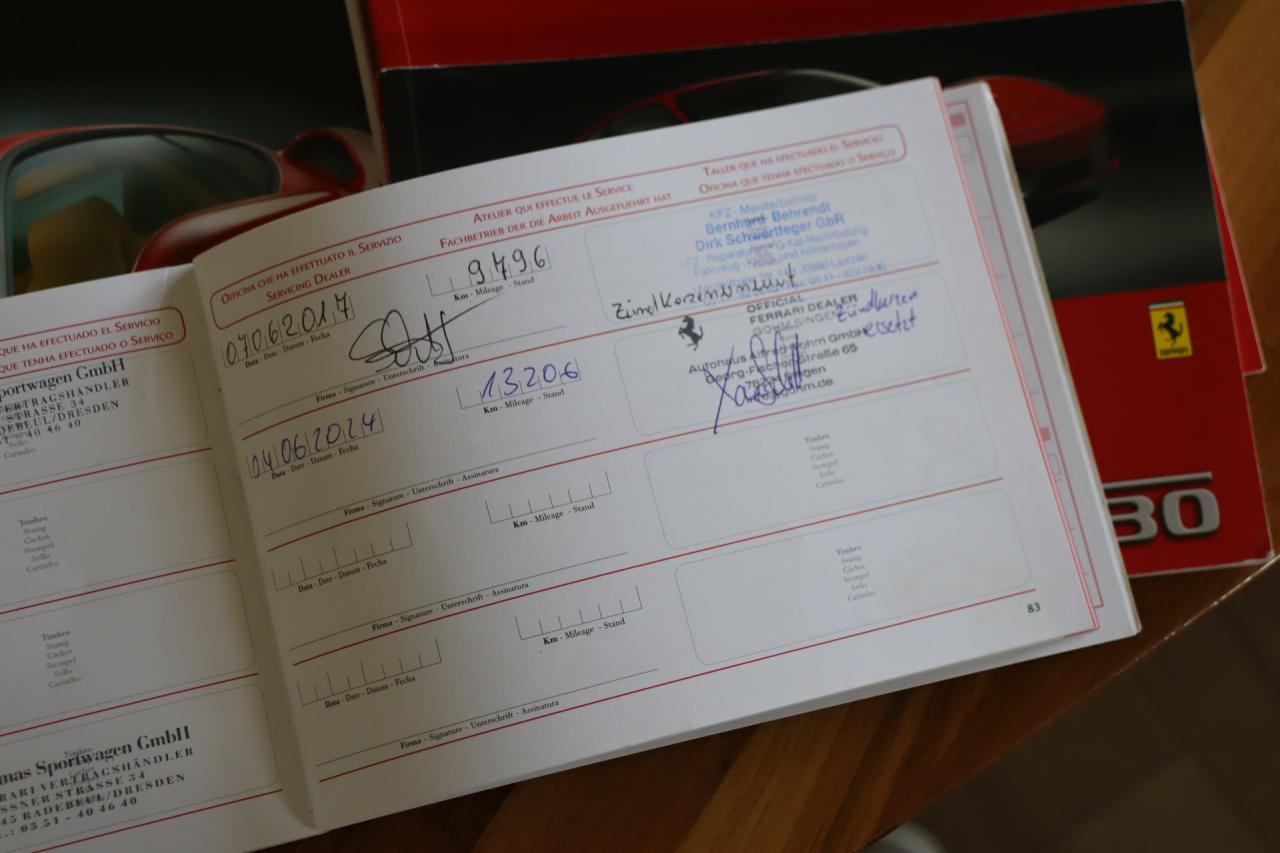 QUE HA EFECTUADO EL SERVICIO
QUE TENHA EFECTUADO O SERVIÇO
portwagen GmbH
ERTRAGSHÄNDLER
STRASSE 34
DEBEUL/DRESDEN
40 46 40
Sello
Carimbo
Timbro
Stamp
Cachet
Stempel
Sello
Carimbo
Timbro
Stamp
Cachet
Stempel
Sello
Carimbo
mas Sportwagen GmbH
RARI VERTRAGSHÄNDLER
SSNER STRASSE 34
45 RADEBEUL/DRESDEN
.: 03 51 - 40 46 40
OFFICINA CHE HA EFFETTUATO IL SERVIZIO
SERVICING DEALER
ATELIER QUI EFFECTUE LE SERVICE
FACHBETRIEB DER DIE ARBEIT AUSGEFUEHRT HAT
TALLER QUE HA EFECTUADO EL SERVICIO
OFICINA QUE TENHA EFECTUADO O SERVIÇO
07062017
Data - Date - Datum - Fecha
9796
Km - Mileage - Stand
Firma - Signature - Unterschrift - Assinatura
KFZ - Meisterbetrieb
Bernhard Behrendt
Dirk Schwertfeger GbR
04062024
Data - Date - Datum - Fecha
13206
Km - Mileage - Stand
Firma - Signature - Unterschrift - Assinatura
OFFICIAL
FERRARI DEALER
GOHM SINGEN
Autohaus Alfred Gohm GmbH
Georg-Fischer-Straße 65
Zündkerzen
ersetzt
Data - Date - Datum - Fecha
Km - Mileage - Stand
Firma - Signature - Unterschrift - Assinatura
Timbro
Stamp
Cachet
Stempel
Sello
Carimbo
Data - Date - Datum - Fecha
Km - Mileage - Stand
Firma - Signature - Unterschrift - Assinatura
Timbro
Stamp
Cachet
Stempel
Sello
Carimbo
83
Ferrari
30